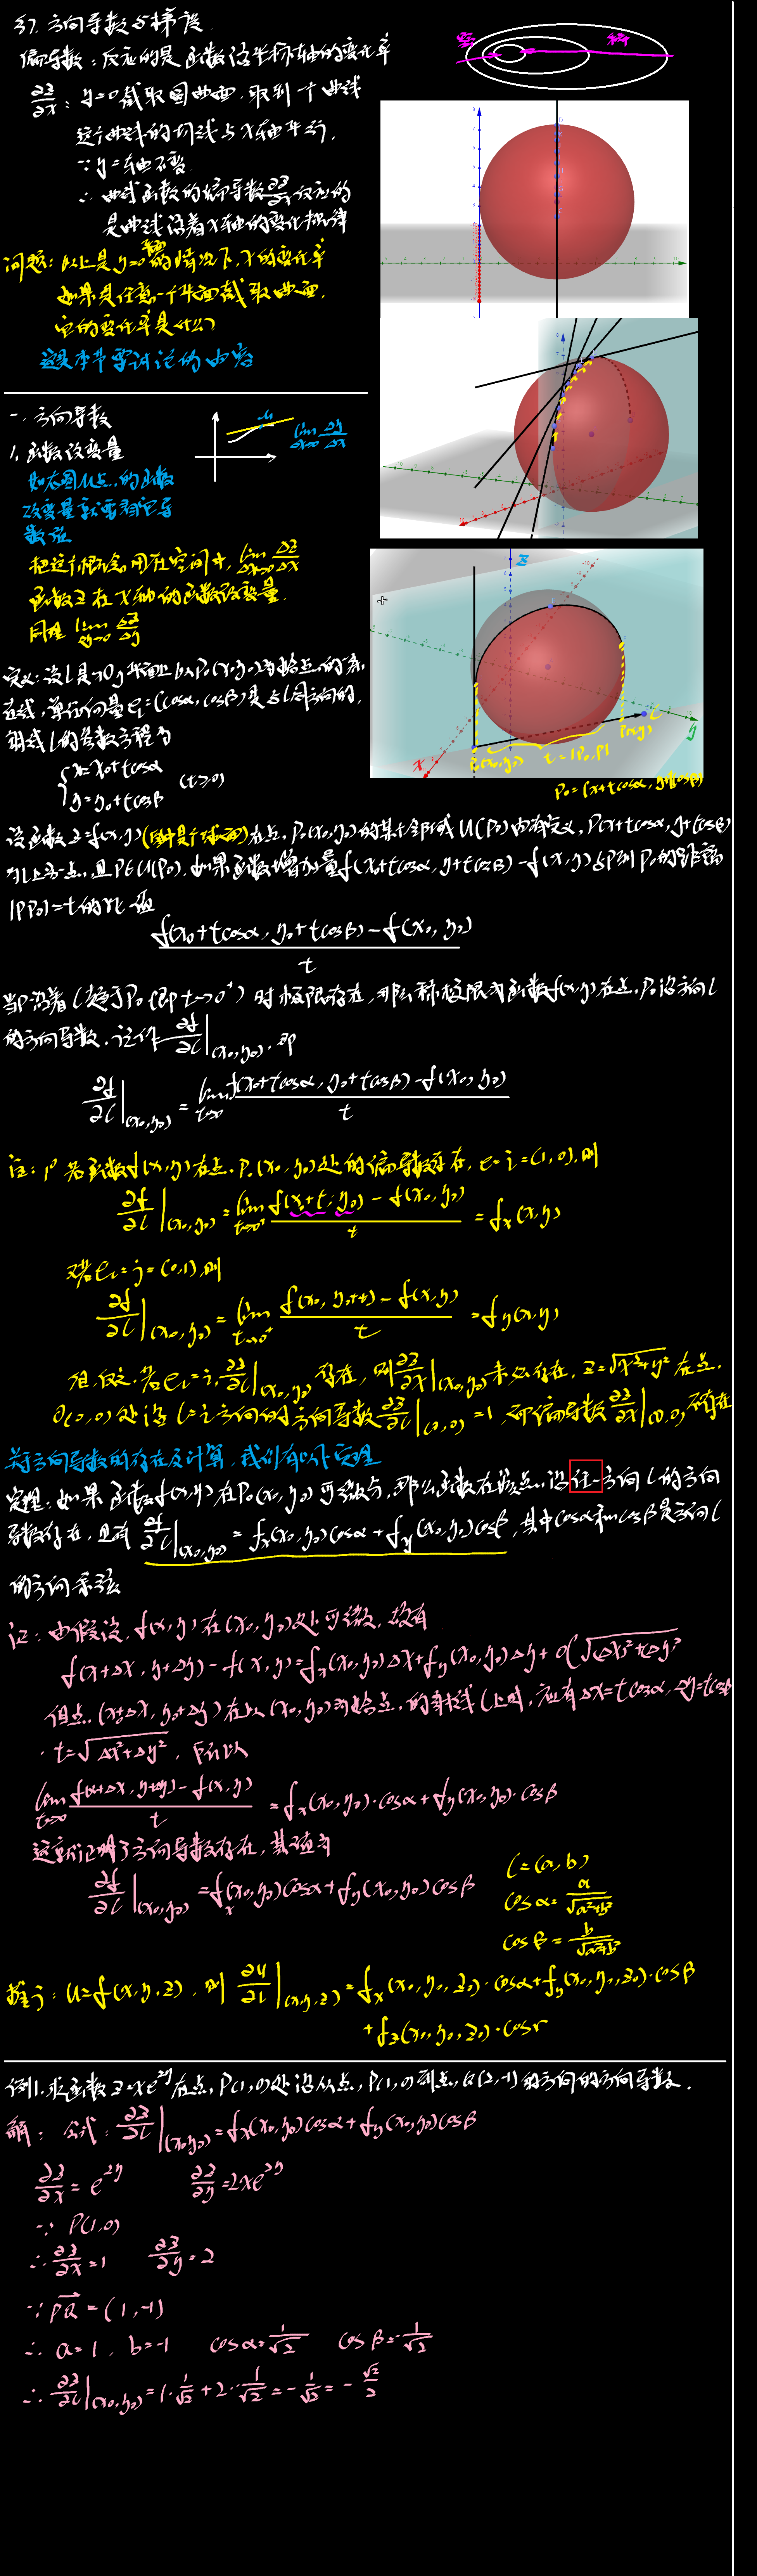 §7. 方向导数与梯度
偏导数：反应的是函数沿坐标轴的变化率
∂z/∂x：y=0截取圆曲面，取到一个曲线
这个曲线的切线与x轴平行，
∵y=轴不变
∴曲线函数的偏导数∂z/∂x反应的
是曲线沿着x轴的变化规律
问题：以上是y=0的情况下，x的变化率
如果是任意一个平面截取曲面，
它的变化率是什么？
这是本节要讨论的内容
一. 方向导数
1. 函数改变量
lim Δx→0 Δy/Δx
如右图M点，的函数
改变量就需要到导
数值
把这个概念用在空间中，lim Δx→0 Δz/Δx
函数z在x轴的函数改变量.
同理 lim Δy→0 Δz/Δy
z
x
y
l
P₀(x₀,y₀) t=|P₀P| P(x,y)
P₀=(x+tcosα, y+tcosβ)
定义：设l是xOy平面上以P₀(x₀,y₀)为始点的一条
射线，单位向量eₗ=(cosα,cosβ)是与l同方向的，
射线l的参数方程为
{x=x₀+tcosα
y=y₀+tcosβ (t≥0)
设函数z=f(x,y)(图中是个球面)在点P₀(x₀,y₀)的某个邻域U(P₀)内有定义，P(x+tcosα,y+tcosβ)
为l上另一点，且P∈U(P₀). 如果函数增加量f(x₀+tcosα,y+tcosβ)-f(x,y)与P到P₀的距离
|PP₀|=t的比值
f(x₀+tcosα, y₀+tcosβ)-f(x₀,y₀) / t
当P沿着l趋于P₀(即t→0⁺)时极限存在，那么称极限为函数f(x,y)在点P₀沿方向l
的方向导数，记作∂f/∂l|(x₀,y₀)，即
∂f/∂l|(x₀,y₀) = lim t→0⁺ f(x₀+tcosα, y₀+tcosβ)-f(x₀,y₀) / t
注：1° 若函数f(x,y)在点P₀(x₀,y₀)处的偏导数存在，eₗ=i=(1,0)，则
∂f/∂l|(x₀,y₀) = lim t→0⁺ f(x₀+t, y₀)-f(x₀,y₀) / t = fx(x,y)
又若eₗ=j=(0,1)，则
∂f/∂l|(x₀,y₀) = lim t→0⁺ f(x₀,y₀+t)-f(x,y) / t = fy(x,y)
但反之，若eₗ=i，∂z/∂l|(x₀,y₀)存在，则∂z/∂x|(x₀,y₀)未必存在，z=√(x²+y²)在点
O(0,0)处沿l=i方向的方向导数∂z/∂l|(0,0)=1，而偏导数∂z/∂x|(0,0)不存在
关于方向导数的存在及计算，我们有以下定理
定理：如果函数f(x,y)在P₀(x₀,y₀)可微分，那么函数在该点沿任一方向l的方向
导数存在，且有∂f/∂l|(x₀,y₀)=fx(x₀,y₀)cosα+fy(x₀,y₀)cosβ，其中cosα和cosβ是方向l
的方向余弦
证：由假设，f(x,y)在(x₀,y₀)处可微，故有
f(x+Δx, y+Δy)-f(x,y)=fx(x₀,y₀)Δx+fy(x₀,y₀)Δy+o(√(Δx)²+(Δy)²
但点(x₀+Δx, y₀+Δy)在以(x₀,y₀)为始点的射线l上时，应有Δx=tcosα,Δy=tcosβ
，t=√(Δx²+Δy²)，所以
lim t→0 f(x+Δx, y+Δy)-f(x,y) / t = fx(x₀,y₀)·cosα+fy(x₀,y₀)·cosβ
这就证明了方向导数存在，其值为
∂f/∂l|(x₀,y₀)=fx(x₀,y₀)cosα+fy(x₀,y₀)cosβ
l=(a,b)
cosα=a/√(a²+b²)
cosβ=b/√(a²+b²)
推广：U=f(x,y,z)，则∂u/∂l|(x,y,z)=fx(x₀,y₀,z₀)·cosα+fy(x₀,y₀,z₀)·cosβ
+fz(x₀,y₀,z₀)·cosr
例1. 求函数z=xe^2y在点P(1,0)处沿从点P(1,0)到点Q(2,-1)的方向的方向导数.
解：公式：∂z/∂l|(x₀,y₀)=fx(x₀,y₀)cosα+fy(x₀,y₀)cosβ
∂z/∂x=e^2y ∂z/∂y=2xe^2y
∵P(1,0)
∴∂z/∂x=1 ∂z/∂y=2
∵PQ=(1,-1)
∴a=1, b=-1 cosα=1/√2 cosβ=-1/√2
∴∂z/∂l|(x₀,y₀)=1·1/√2+2·-1/√2=-1/√2=-√2/2